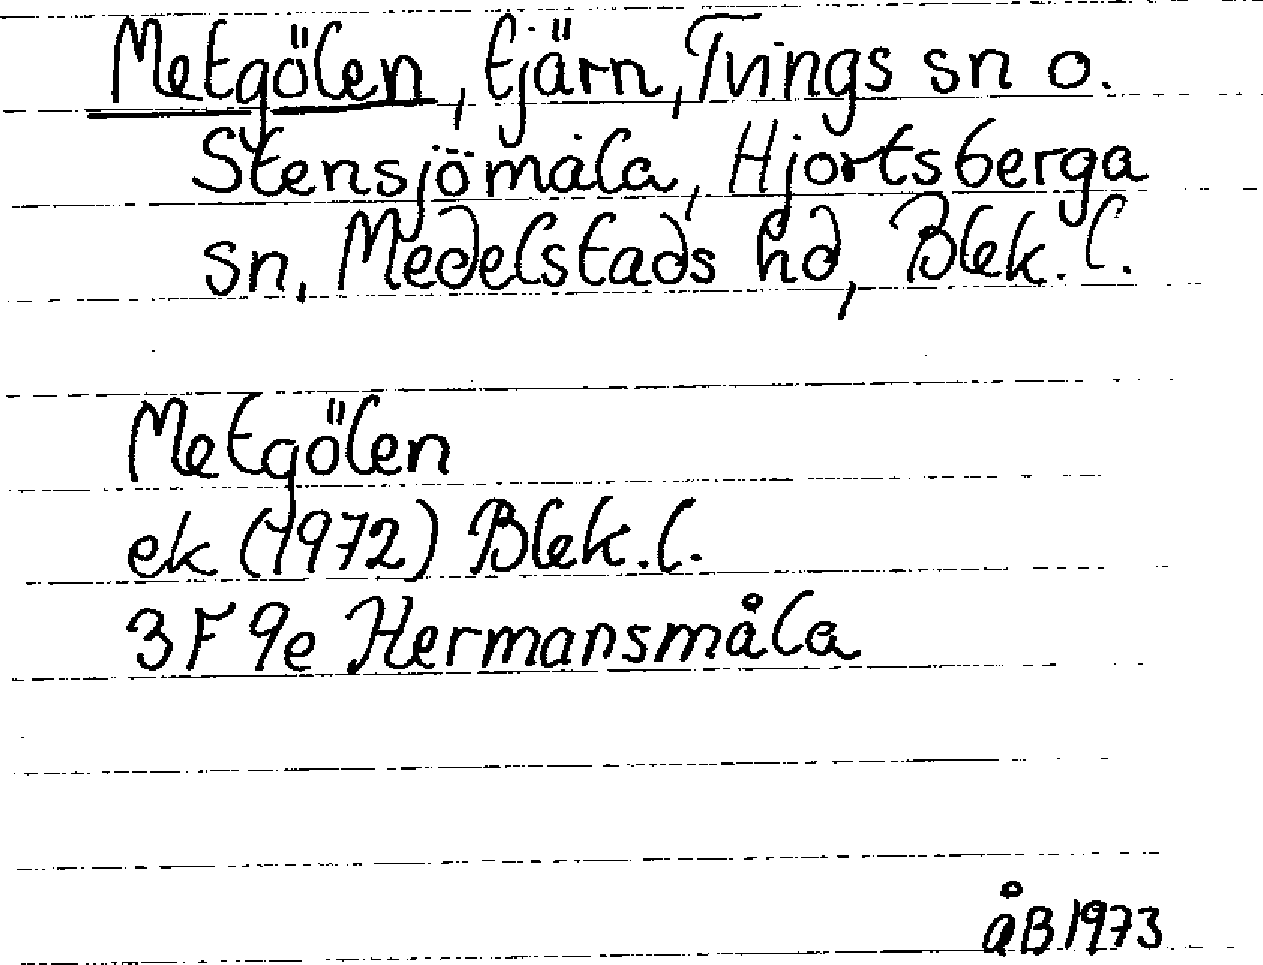 Metgölen, tjärn, Tvings sn o.
Stensjömåla, Hjortsberga
sn, Medelstads hd, Blek. l.
Metgölen
ek (1972) Blek. l.
3F 9e Hermansmåla
åB 1973